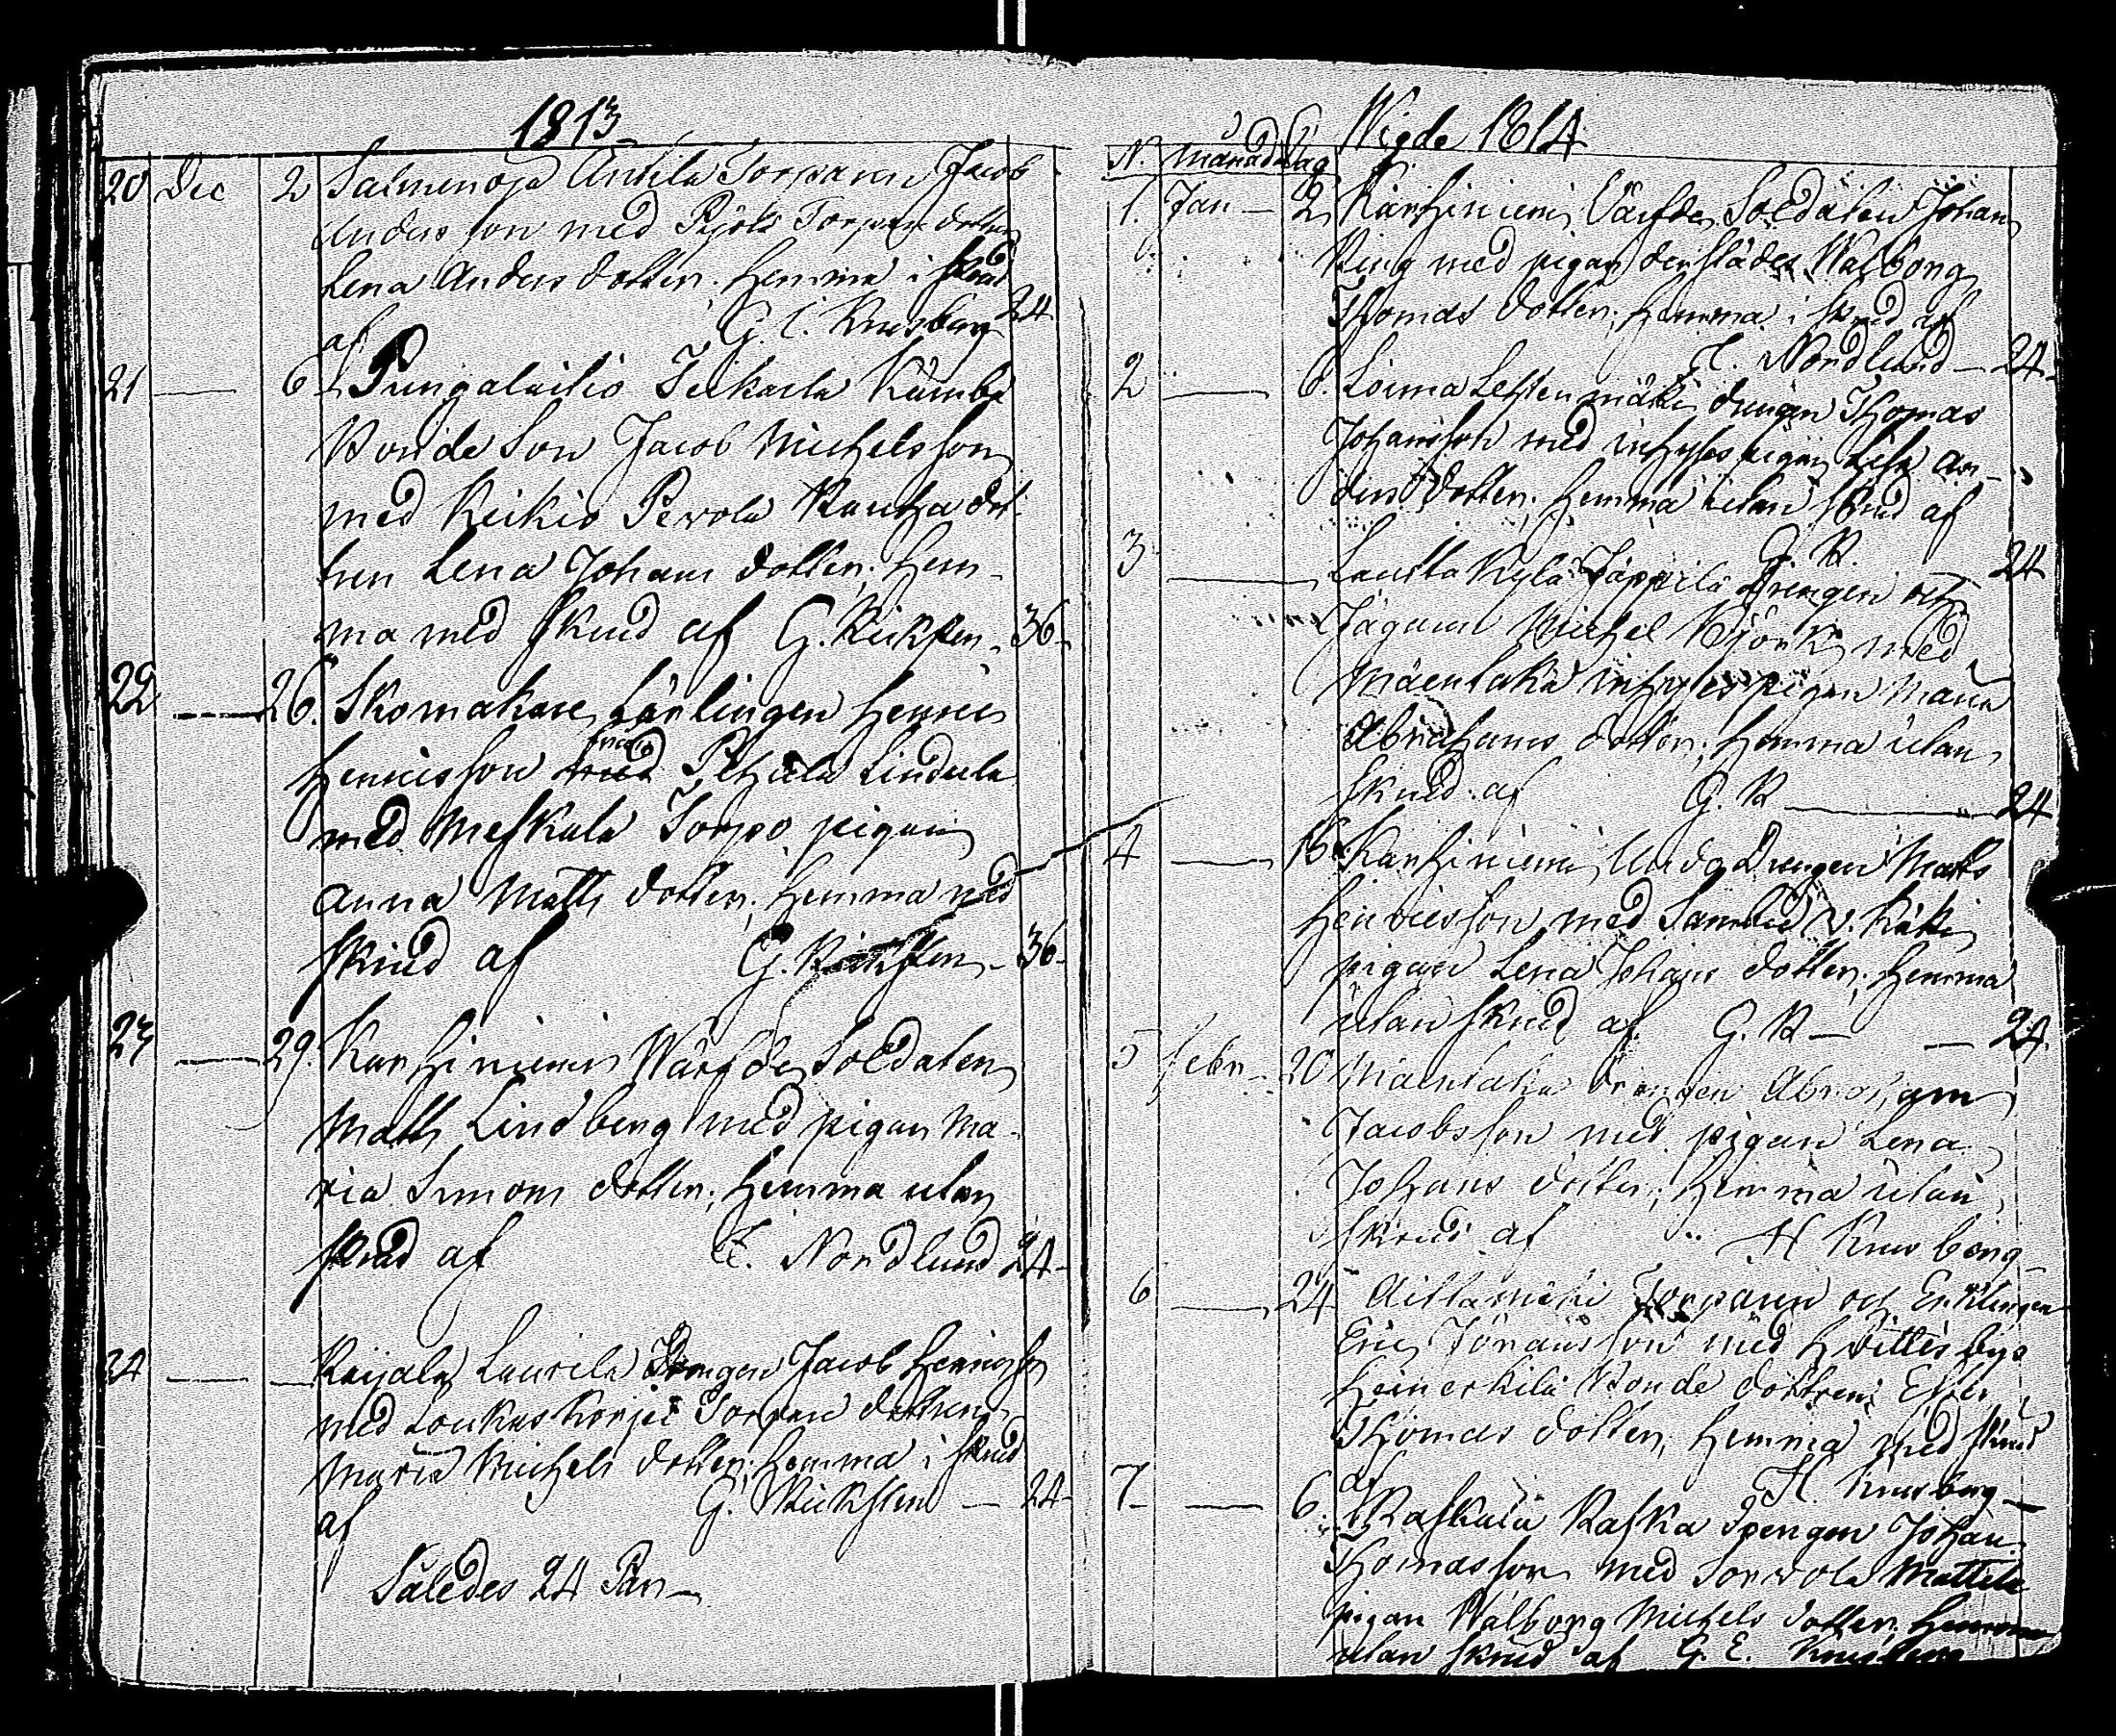 1813
20 Dec 2 Salmenoja Anttila Torparen Jacob
Andersson med Torpare dottren
Lena Anders dotter. hemma i skrud
af G. E. Krusberg 24
21 — 6 Pungalaitio Kåmbi
Bonde Son Jacob Michelsson
med Keikio Pervola Bonda dot-
tren Lena Johans dotter; hem-
ma med skrud af G. Kicksten - 36-
22 — 26. Skomakare Lärlingen Henric
Henricsson från Pehula Lindula
med Meskala Torpo pigan
Anna Matts dotter; hemma med
skrud af G. - 36-
23 — 29. Karhiniemi Wärfde Soldaten
Matts Lindberg med pigan Ma-
ria Simons dotter; hemma utan
skrud af E. Nordlund 24-
24 — — Raijala Laurila Drengen Jacob Henricsson
med Loukas Korpi Torpare dottren
Maria Michels dotter; hemma i skrud
af G. — 24-
Således 24 Par —
Wigde 1814
N. Månad Dag
1. Jan — 2 Karhiniemi Värfde Soldaten Johan
Ring med pigan derstädes Walborg
Thomas dotter; hemma i skrud af
E. Nordlund — 24-
2 — 6. Loima drängen Thomas
Johansson med inhyses pigan Lisa An-
ders dotter; hemma utan skrud af
G. K 24
3 — Lautta Kylä Jäppilä Drengen och
Jägaren Michel Björk med
Mäentaka inhyses pigan Maria
Abrahams dotter; hemma utan
skrud af G. K — 24
4 — 16. Karhiniemi Unda Drengen Matts
Henricsson med Sambu
pigan Lena Johans dotter; hemma
utan skrud af G. K — — 24.
5 Febr — 20 Mäentaka Drengen Abraham
Jacobsson med pigan Lena
Johans dotter; hemma utan
skrud af H Krusberg
6 — 24 Aittamäki Torparen och Enklingen
Eric Jöransson med Hvittis bys
Heinerkilä Bonde dottren Ester
Thomas dotter, hemma med skrud
af H. Krusberg —
7 — 6. Raskala Raska Drengen Johan
Thomasson med Sorvola Mattila
pigan Walborg Michels dotter; hemma
utan skrud af G. E. Krusberg